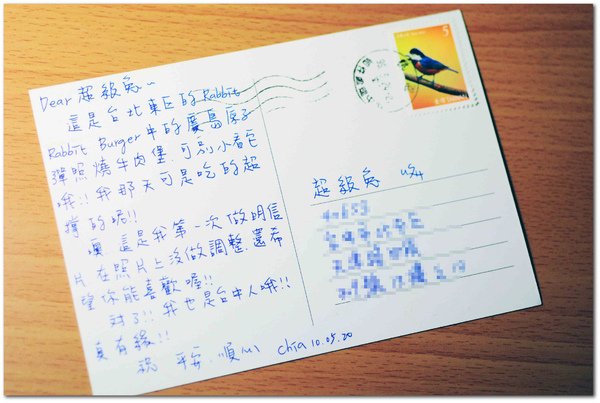 Dear 超級兔~
這是台北東區的Rabbit
Rabbit Burger中的廣島原子
彈照燒牛肉堡.可別小看它
哦!!我那天可是吃的超
撐的呢!!
噢.這是我第一次做明信
片.在照片上沒做調整.還希
望你能喜歡喔!!
對了!!我也是台中人哦!!
真有緣!!
祝 平安.順心 Chia 10.05.20
5
超級兔 收